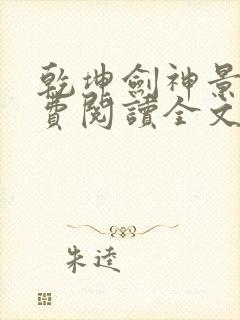 乾坤劍神景
費閱讀全文
朱逵